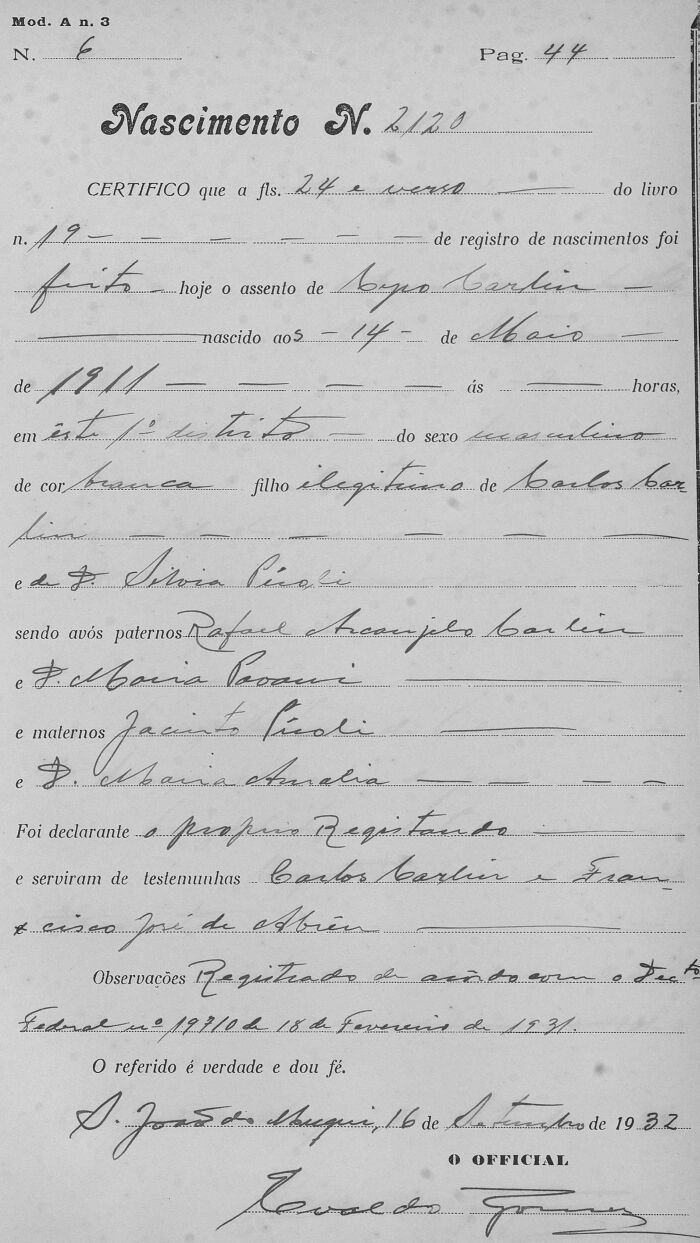 Mod. A n. 3
N. 6 Pag. 44
Nascimento N. 2120
CERTIFICO que a fls. 24 e verso — do livro
n. 19 — — — — — — de registro de nascimentos foi
feito — hoje o assento de Cyro Carlin —
— nascido aos - 14 - de Maio —
de 1911 — — — — ás — horas,
em êste 1º distrito — do sexo masculino
de cor branca filho ilegitimo de Carlos Car-
lin — — — — — —
e de D. Silvia Picoli
sendo avós paternos Rafael Arcanjelo Carlin
e D. Maria Pavani —
e maternos Jacinto Picoli —
e D. Maria Amalia — — — —
Foi declarante o proprio Registando —
e serviram de testemunhas Carlos Carlin e Fran-
cisco José de Abrêu —
Observações Registrado de acôrdo com o Decto
Federal nº 19710 de 18 de Fevereiro de 1931.
O referido é verdade e dou fé.
S. João do Muqui, 16 de Setembro de 1932
O OFFICIAL
Evaldo Gomes